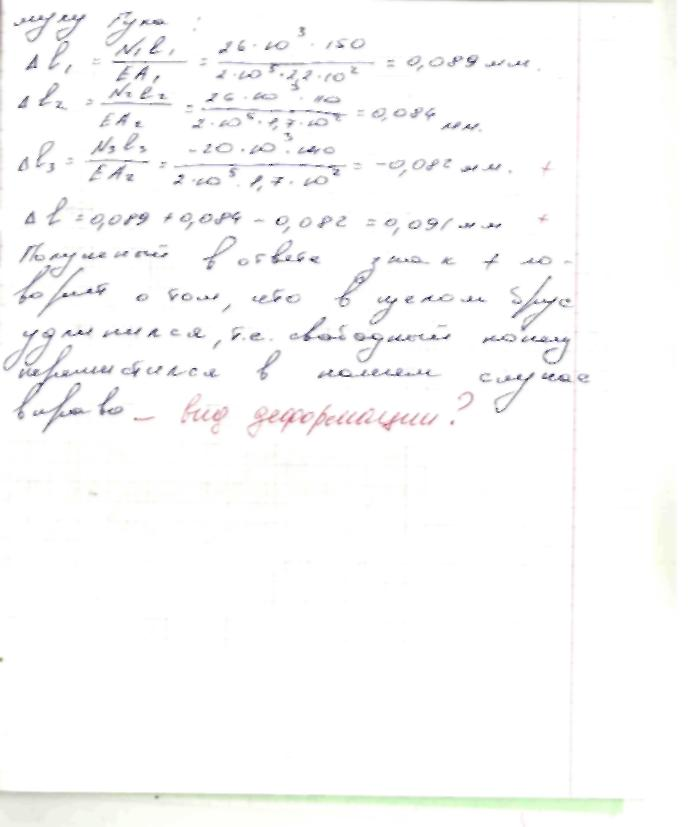 мулу Гука :
Δl₁ = N₁l₁/EA₁ = 26·10³·150/2·10⁵·2,2·10² = 0,089 мм.
Δl₂ = N₂l₂/EA₂ = 26·10³·110/2·10⁵·1,7·10² = 0,084 мм.
Δl₃ = N₃l₃/EA₂ = -20·10³·140/2·10⁵·1,7·10² = -0,082 мм. +
Δl = 0,089 + 0,084 - 0,082 = 0,091 мм +
Полученый в ответе знак + го-
ворит о том, что в целом брус
удлинился, т.е. свободный конец
переместился в нашем случае
вправо – вид деформации?